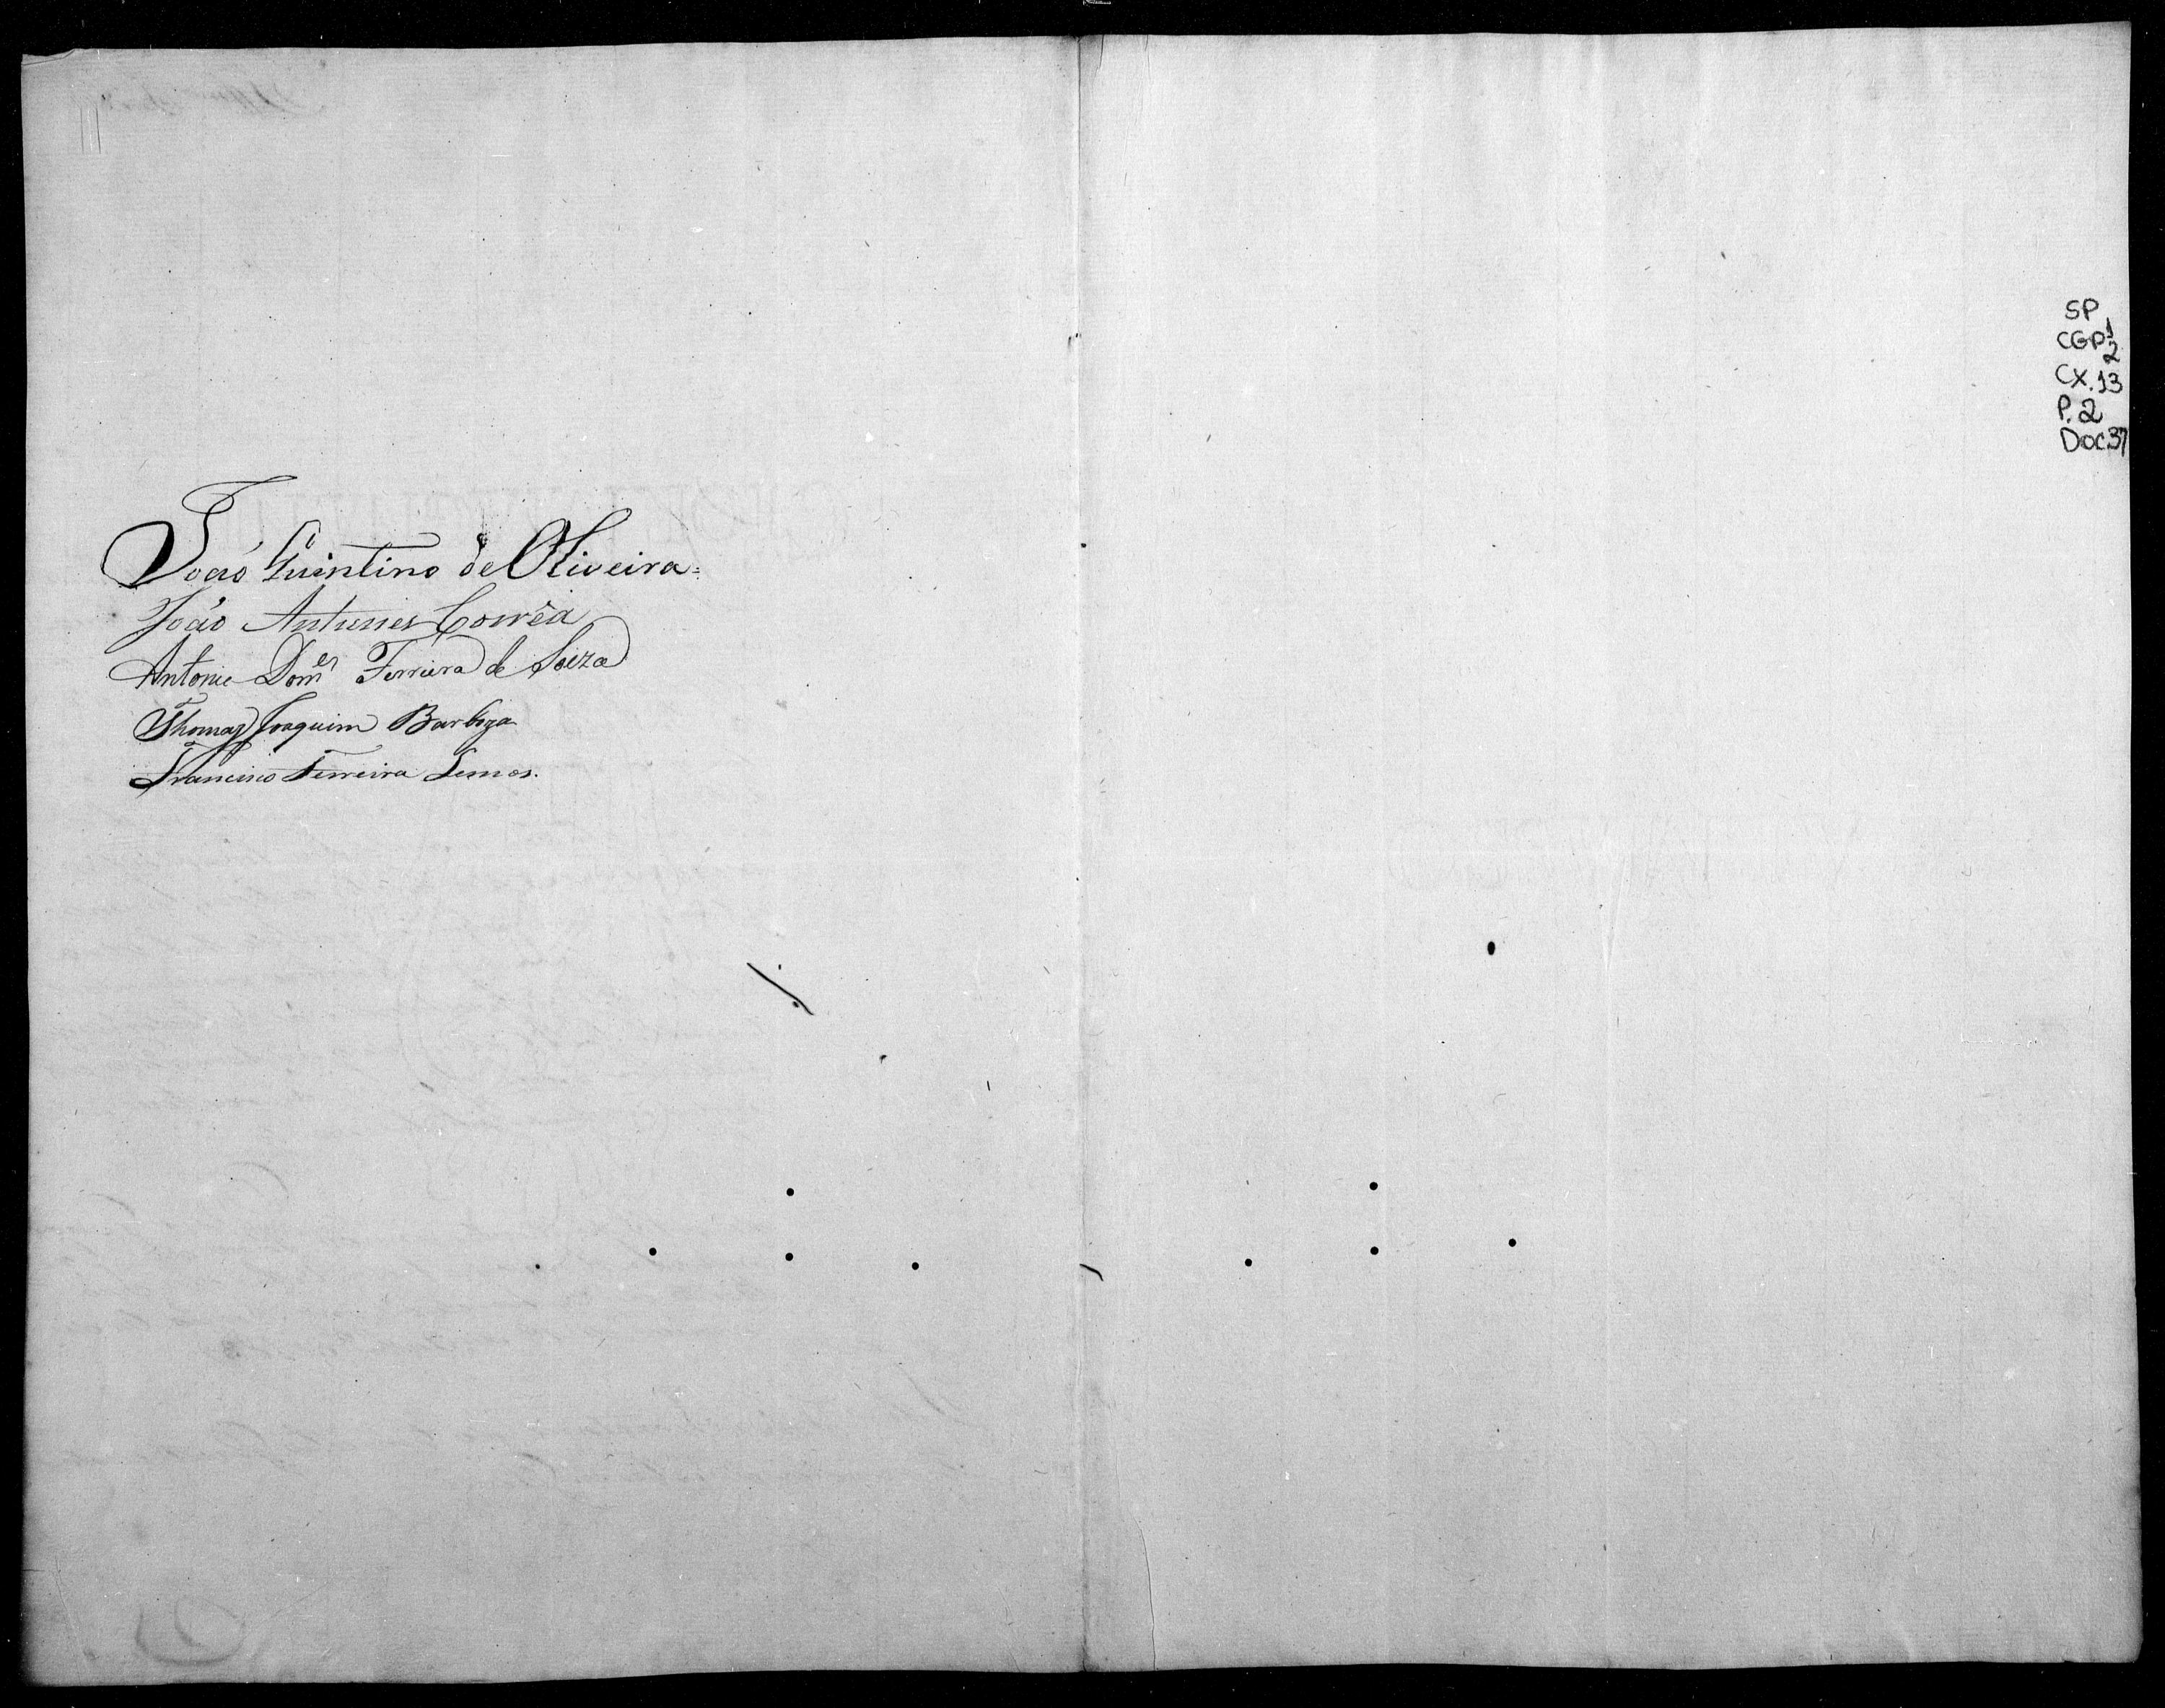 João Quintino de Oliveira
João Antunes Corrêa
Antonio Dom.es Ferreira de Souza
Thomaz Joaquim Barboza
Francisco Ferreira Lemos.
SP
CGP 1
2
CX.13
P.2
Doc37